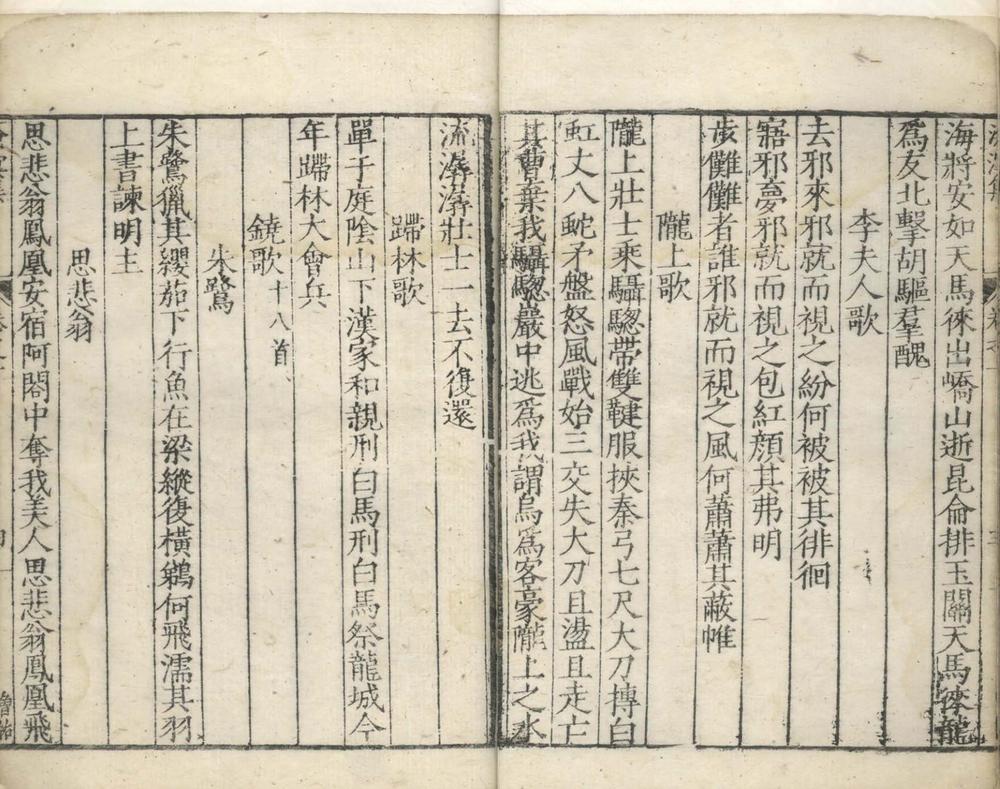 海將安如天馬徠出嶠山逝昆侖排玉關天馬徠龍
爲友北擊胡驅羣醜
李夫人歌
去邪來邪就而視之紛何被被其徘徊
寤邪夢邪就而視之包紅顏其弗明
步儺儺者誰邪就而視之風何蕭蕭其蔽帷
隴上歌
隴上壯士乘驌驄帶雙鞬服挾秦弓七尺大刀摶白
虹丈八蛇矛盤怒風戰始三交失大刀且盪且走亡
其曹棄我驌驄巖中逃爲我謂烏爲客豪隴上之水
流潺潺壯士一去不復還
蹛林歌
單于庭陰山下漢家和親刑白馬刑白馬祭龍城今
年蹛林大會兵
鐃歌十八首
朱鷺
朱鷺獵其纓茄下行魚在梁縱復橫鵜何飛濡其羽
上書諫明主
思悲翁
思悲翁鳳凰安宿阿閣中奪我美人思悲翁鳳凰飛